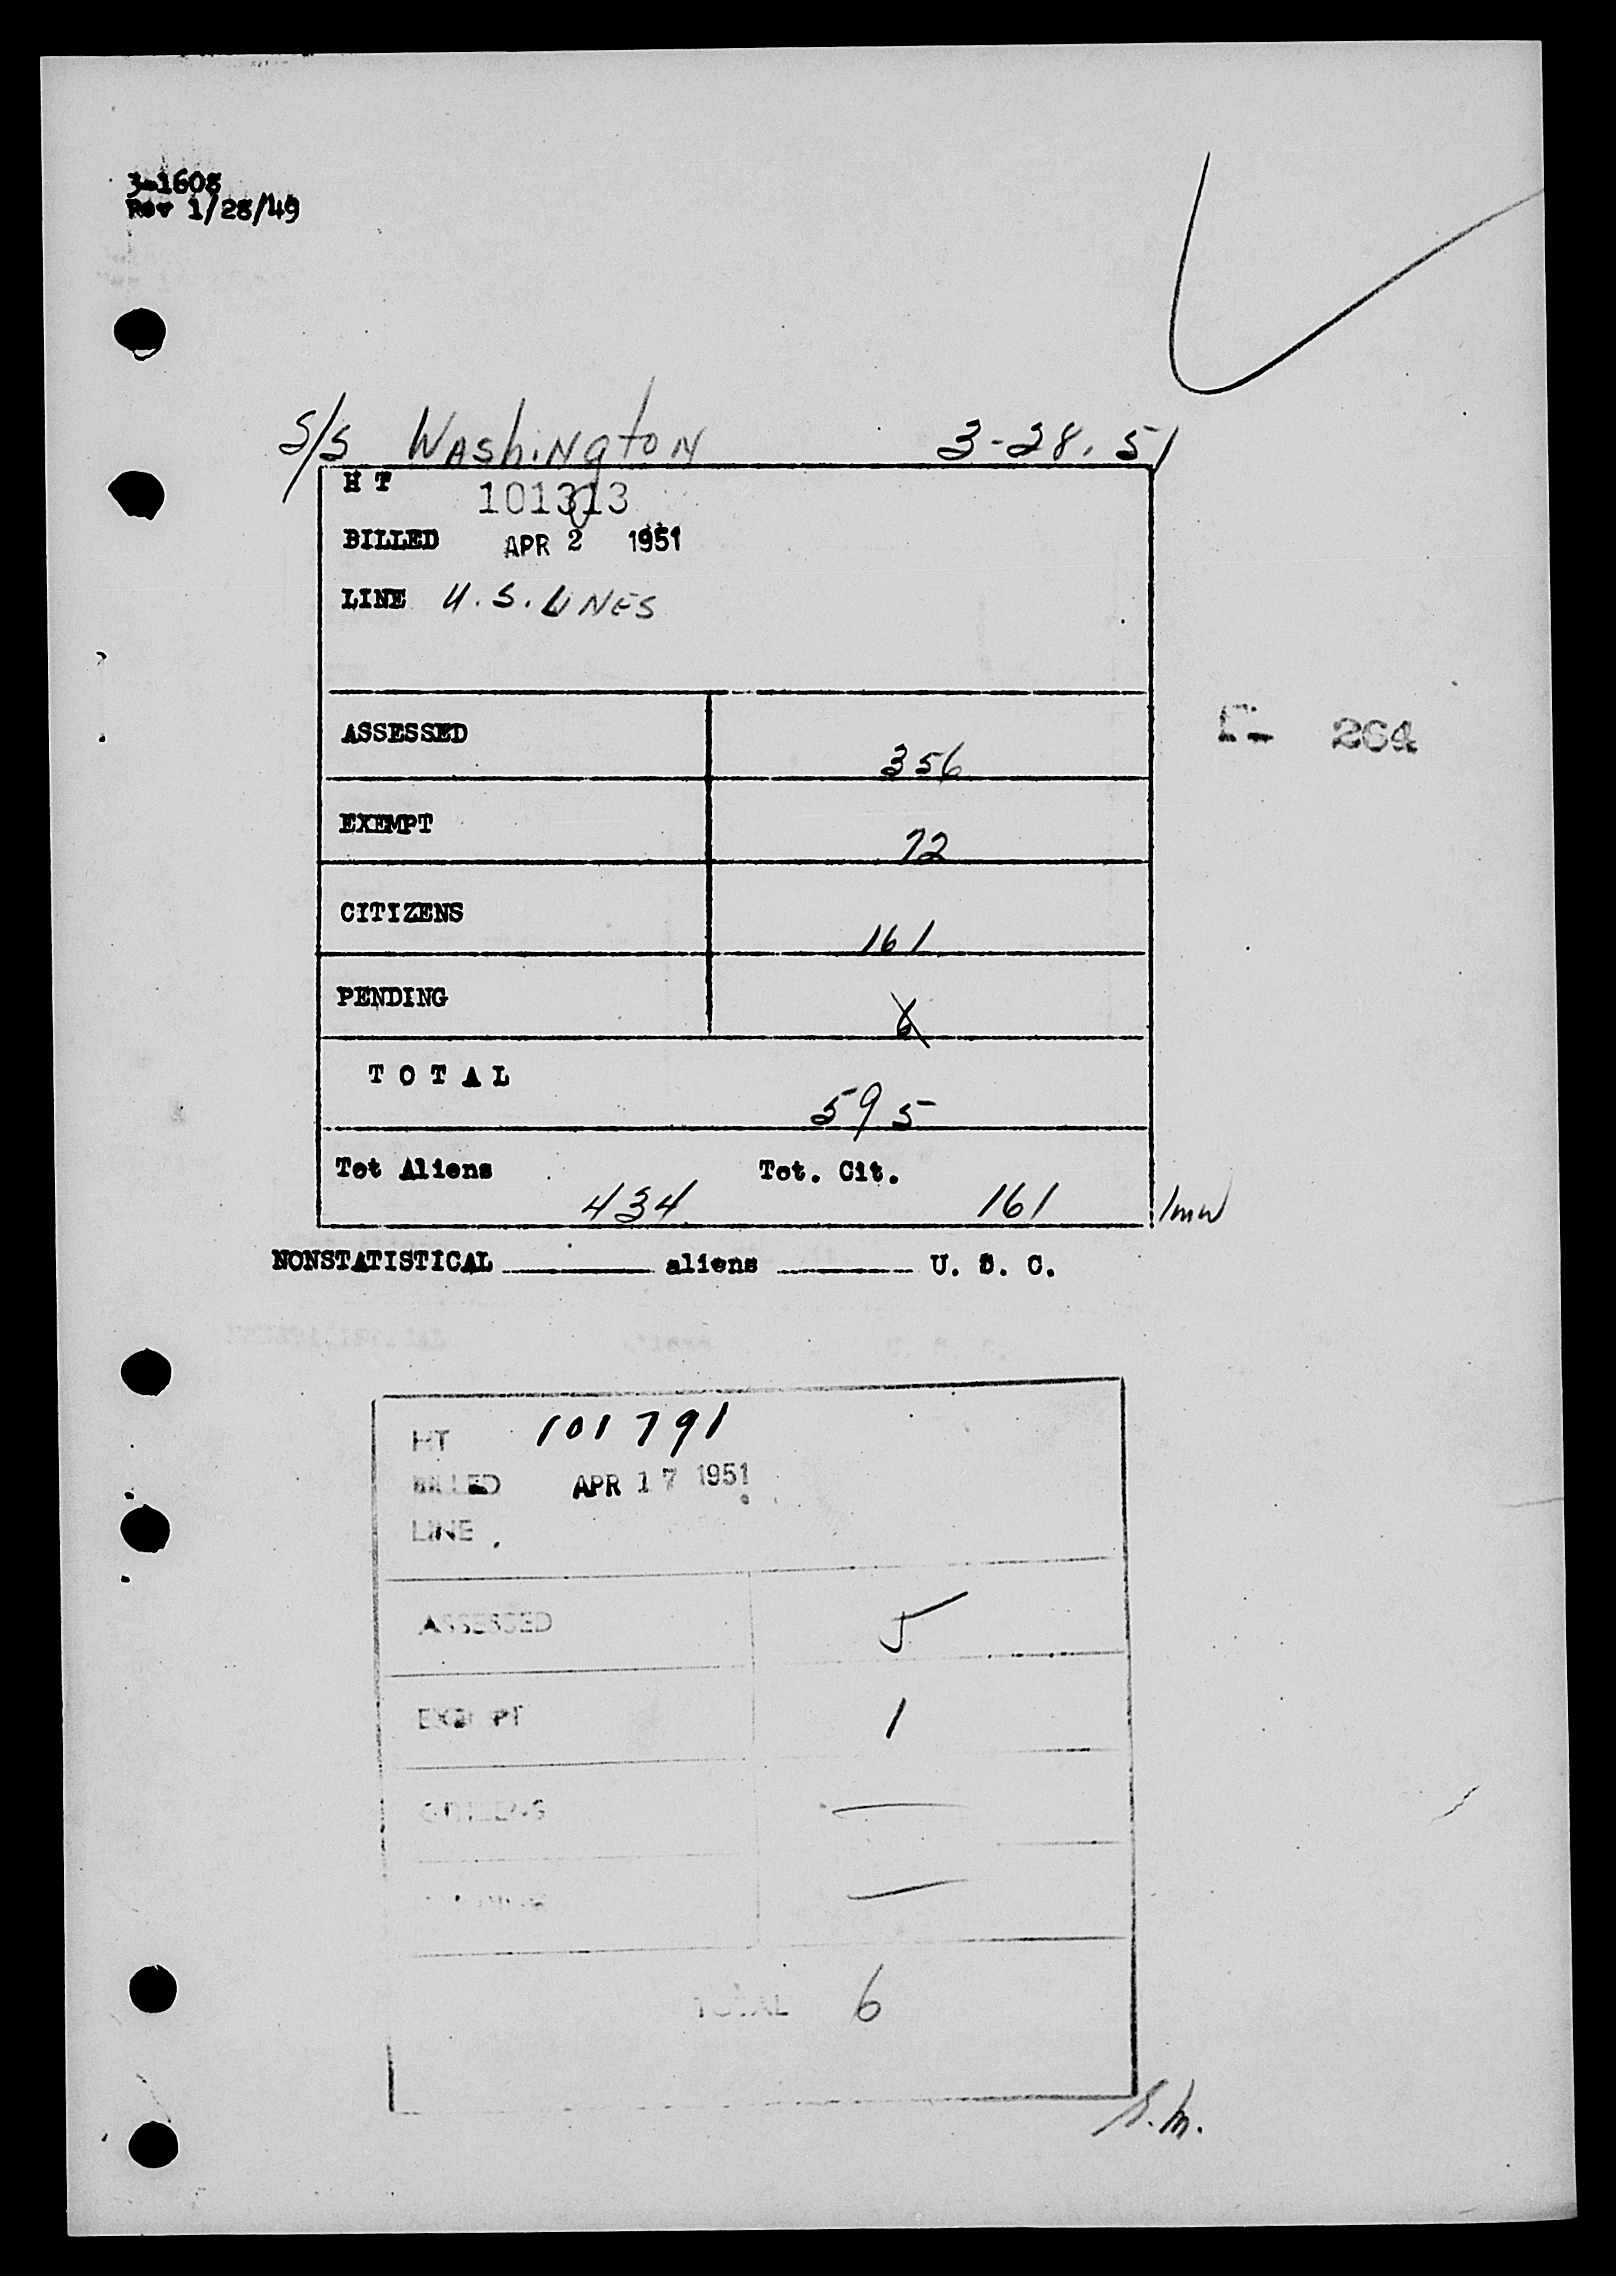 3-1608
Rev 1/28/49
S/S Washington 3-28.51
H T 101313
BILLED APR 2 1951
LINE U.S. LINES
ASSESSED 356
264
EXEMPT 72
CITIZENS 161
PENDING 6
T O T A L 595
Tot Aliens 434 Tot. Cit. 161
NONSTATISTICAL aliens U. S. C.
HT 101791
BILLED APR 17 1951
LINE
ASSESSED 5
EXEMPT 1
CITIZENS —
—
TOTAL 6